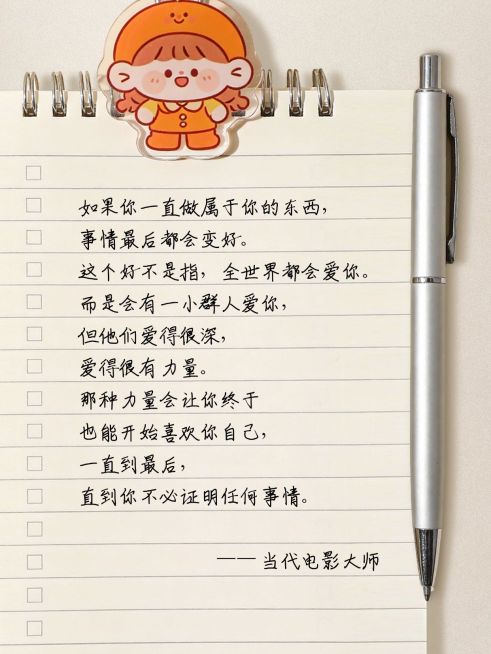 如果你一直做属于你的东西，
事情最后都会变好。
这个好不是指，全世界都会爱你。
而是会有一小群人爱你，
但他们爱得很深，
爱得很有力量。
那种力量会让你终于
也能开始喜欢你自己，
一直到最后，
直到你不必证明任何事情。
——当代电影大师